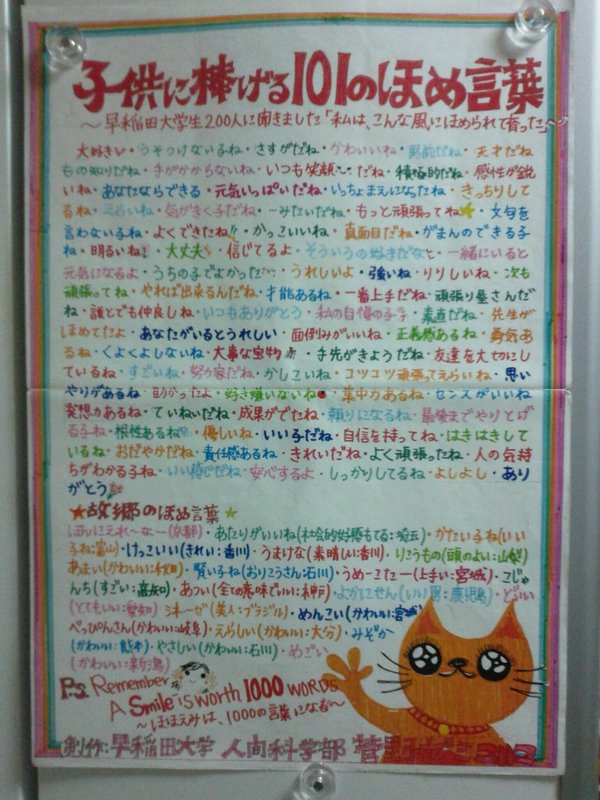 子供に捧げる101のほめ言葉
～早稲田大学生200人に聞きました「私は、こんな風にほめられて育った」～
大好き・うそつけない子ね・さすがだね・かわいいね・男前だね・天才だね
もの知りだね・きがかからないね・いつも笑顔だね・積極的だね・感性が鋭
いね・あなたならできる・元気いっぱいだね・いっちょまえになったね・きっちりして
るね・えらいね・気がきく子だね・一みたいだね・もっと頑張ってね・文句を
言わない子ね・よくできたね!!・かっこいいね・真面目だね・がまんのできる子
ね・明るいね・大丈夫・信じてるよ・そういうの好きだな・一緒にいると
元気になるよ・うちの子でよかった・うれしいよ・強いね・りりしいね・次も
頑張ってね・やれば出来るんだね・才能あるね・一番上手だね・頑張り屋さんだ
ね・誰とでも仲良しね・いつもありがとう・私の自慢の子・素直だね・先生が
ほめてたよ・あなたがいるとうれしい・面倒みがいいね・正義感あるね・勇気あ
るね・くよくよしない・大事な宝物・手先がきようだね・友達を大切にし
ているね・すごいね・努力家だね・かしこいね・コツコツ頑張ってえらいね・思い
やりがあるね・助かったよ・好き嫌いないね・集中力あるね・センスがいいね
発想力あるね・ていねいだね・成果がでたね・頼りになるね・最後までやりとげ
る子ね・根性あるね・優しいね・いい子だね・自信を持ってね・はきはきして
いるね・おだやかだね・責任感あるね・きれいだね・よく頑張ったね・人の気持
ちがわかる子ね・いい感じだね・安心するよ・しっかりしてるね・よしよし・あり
がとう
★故郷のほめ言葉★
ほんにえれ～な～(京都)・あたりがいいね(社会的好感もてる:埼玉)・かたい子ね(いい
子ね:富山)・けっこいい(きれい:香川)・うまけな(素晴しい:香川)・りこうもの(頭のよい:山梨)
あまい(かわいい:秋田)・賢い子ね(おりこうさん:石川)・うめーこたー(上手い:宮城)・こじゃ
んち(すごい:高知)・あつい(全ての意味でいい:神戸)・よかにせん(いい男:鹿児島)・どいい
(とてもいい:愛知)・ジネーゼ(美人:ブラジル)・めんこい(かわいい:宮城)
べっぴんさん(かわいい:岐阜)・えらしい(かわいい:大分)・みぞか
(かわいい:熊本)・やさしい(かわいい:石川)・めごい
(かわいい:新潟)
P.S. Remember
A Smile is worth 1000 WORDS
～ほほえみは、1000の言葉になる～
創作:早稲田大学 人間科学部 菅野